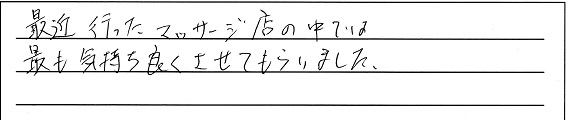 最近行ったマッサージ店の中では
最も気持ち良くさせてもらいました。